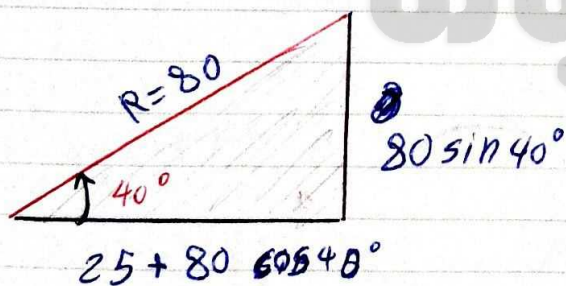 R=80
80 sin 40°
40°
25 + 80 cos 40°